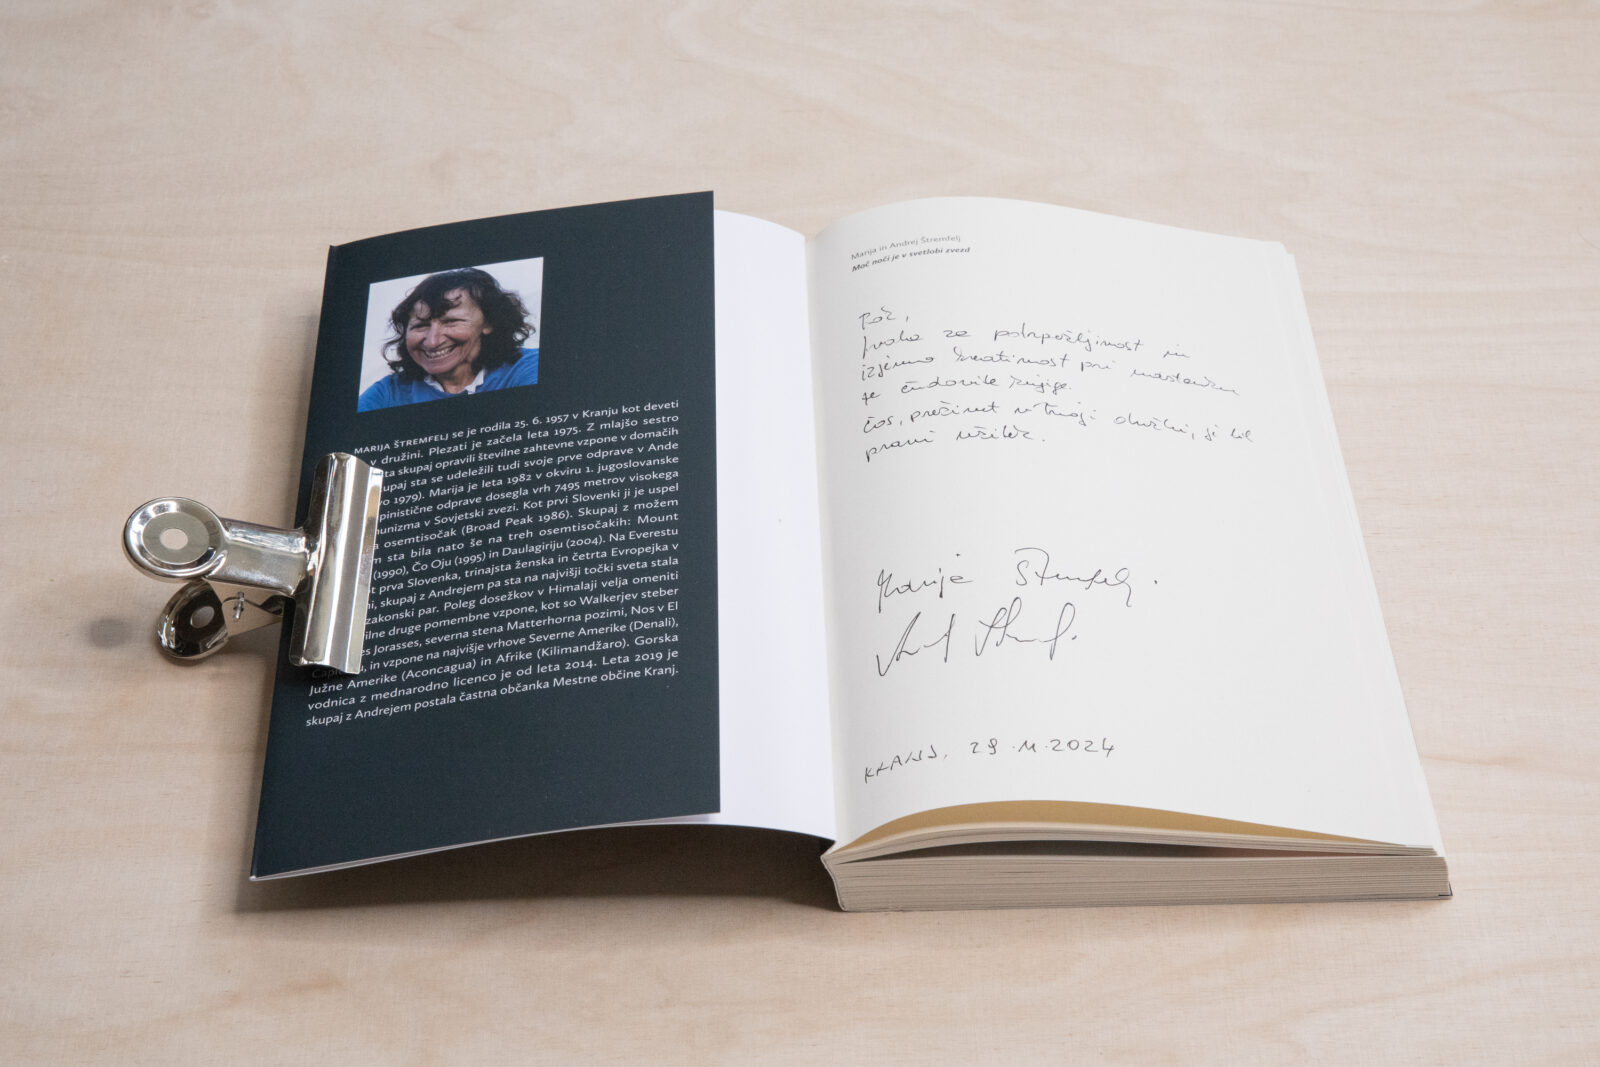 MARIJA ŠTREMFELJ se je rodila 25. 6. 1957 v Kranju kot deveti
v družini. Plezati je začela leta 1975. Z mlajšo sestro
ta skupaj opravili številne zahtevne vzpone v domačih
upaj sta se udeležili tudi svoje prve odprave v Ande
vo 1979). Marija je leta 1982 v okviru 1. jugoslovanske
pinistične odprave dosegla vrh 7495 metrov visokega
unizma v Sovjetski zvezi. Kot prvi Slovenki ji je uspel
a osemtisočak (Broad Peak 1986). Skupaj z možem
m sta bila nato še na treh osemtisočakih: Mount
(1990), Čo Oju (1995) in Daulagiriju (2004). Na Everestu
t prva Slovenka, trinajsta ženska in četrta Evropejka v
ni, skupaj z Andrejem pa sta na najvišji točki sveta stala
zakonski par. Poleg dosežkov v Himalaji velja omeniti
ilne druge pomembne vzpone, kot so Walkerjev steber
es Jorasses, severna stena Matterhorna pozimi, Nos v El
Capi u, in vzpone na najvišje vrhove Severne Amerike (Denali),
Južne Amerike (Aconcagua) in Afrike (Kilimandžaro). Gorska
vodnica z mednarodno licenco je od leta 2014. Leta 2019 je
skupaj z Andrejem postala častna občanka Mestne občine Kranj.
Marija in Andrej Štremfelj
Moč noči je v svetlobi zvezd
hvala za potrpežljivost in
izjemno kreativnost pri nastanku
te čudovite knjige.
čas, preživet v tvoji družbi, je bil
pravi užitek.
Marija Štremfelj.
KRANJ, 29.11.2024